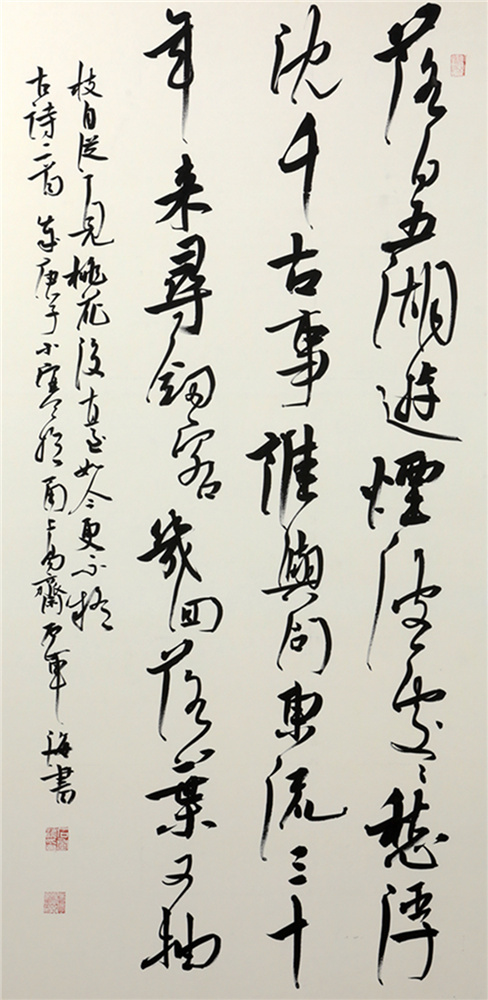 落日五湖遊煙波處々愁浮
沈千古事誰與問東流三十
年来尋劍客幾回落葉又抽
枝自從一見桃花後直至如今更不疑
古詩二首 庚子小寒於甬上 齋 軍海書